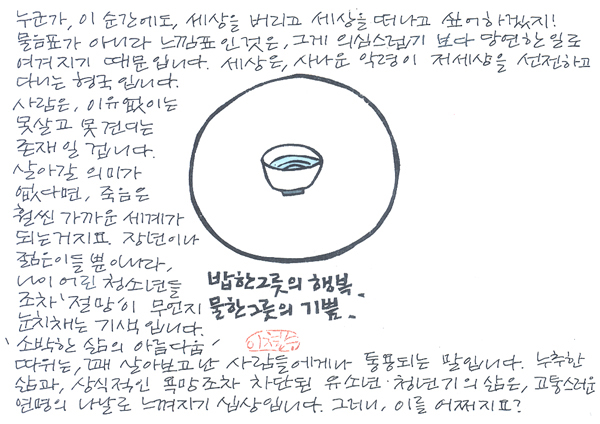 누군가, 이 순간에도, 세상을 버리고 세상을 떠나고 싶어하겠지!
물음표가 아니라 느낌표인것은, 그게 의심스럽기 보다 당연한 일로
여겨지기 때문입니다. 세상은, 사나운 악령이 저세상을 선전하고
다니는 형국입니다.
사람은, 이유없이는
못살고 못견디는
존재일 겁니다.
살아갈 의미가
없다면, 죽음은
훨씬 가까운 세계가
되는거지표. 장년이나
젊은이들 뿐아니라,
나이 어린 청소년들
조차 '절망'이 무언지
눈치채는 기색입니다.
'소박한 삶의 아름다움'
따위는, 꽤 살아보고난 사람들에게나 통용되는 말입니다. 누추한
삶과, 상식적인 욕망조차 차단된 유소년·청년기의 삶은, 고통스러운
연명의 나날로 느껴지기 십상입니다. 그러니, 이를 어쩌지표?
밥한그릇의 행복.
물한그릇의 기쁨.
이철수